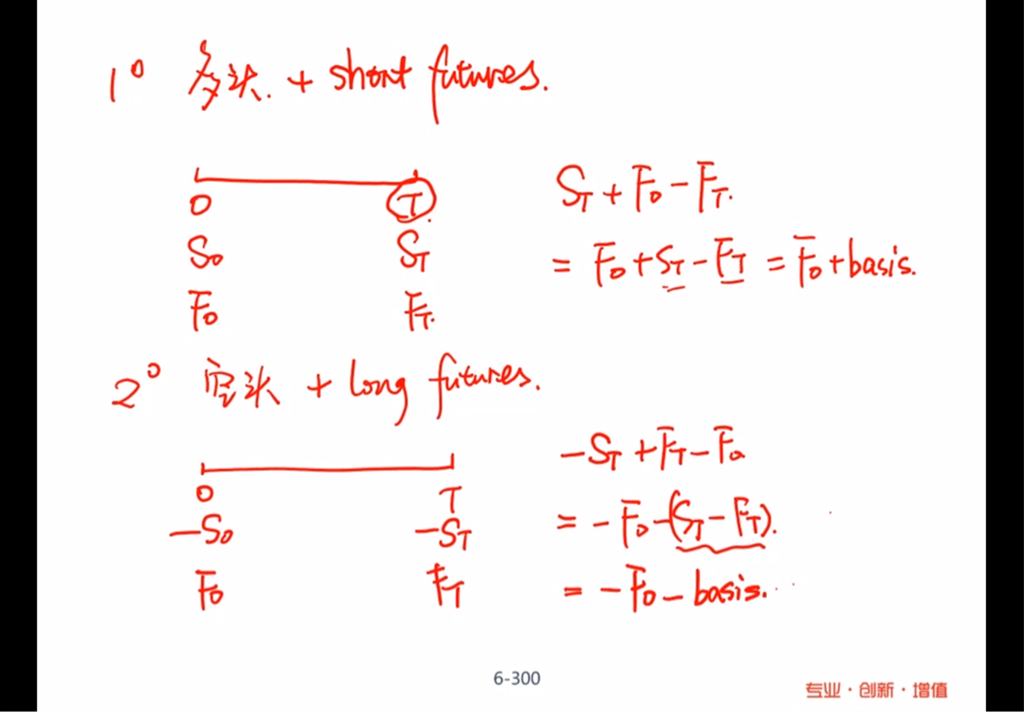 1° 多头. + short futures.
0 T
S₀ S_T
F₀ F_T.
S_T + F₀ - F_T.
= F₀ + S_T - F_T = F₀ + basis.
2° 空头 + long futures.
0 T
-S₀ -S_T
F₀ F_T
-S_T + F_T - F₀
= -F₀ - (S_T - F_T).
= -F₀ - basis.
6-300
专业·创新·增值